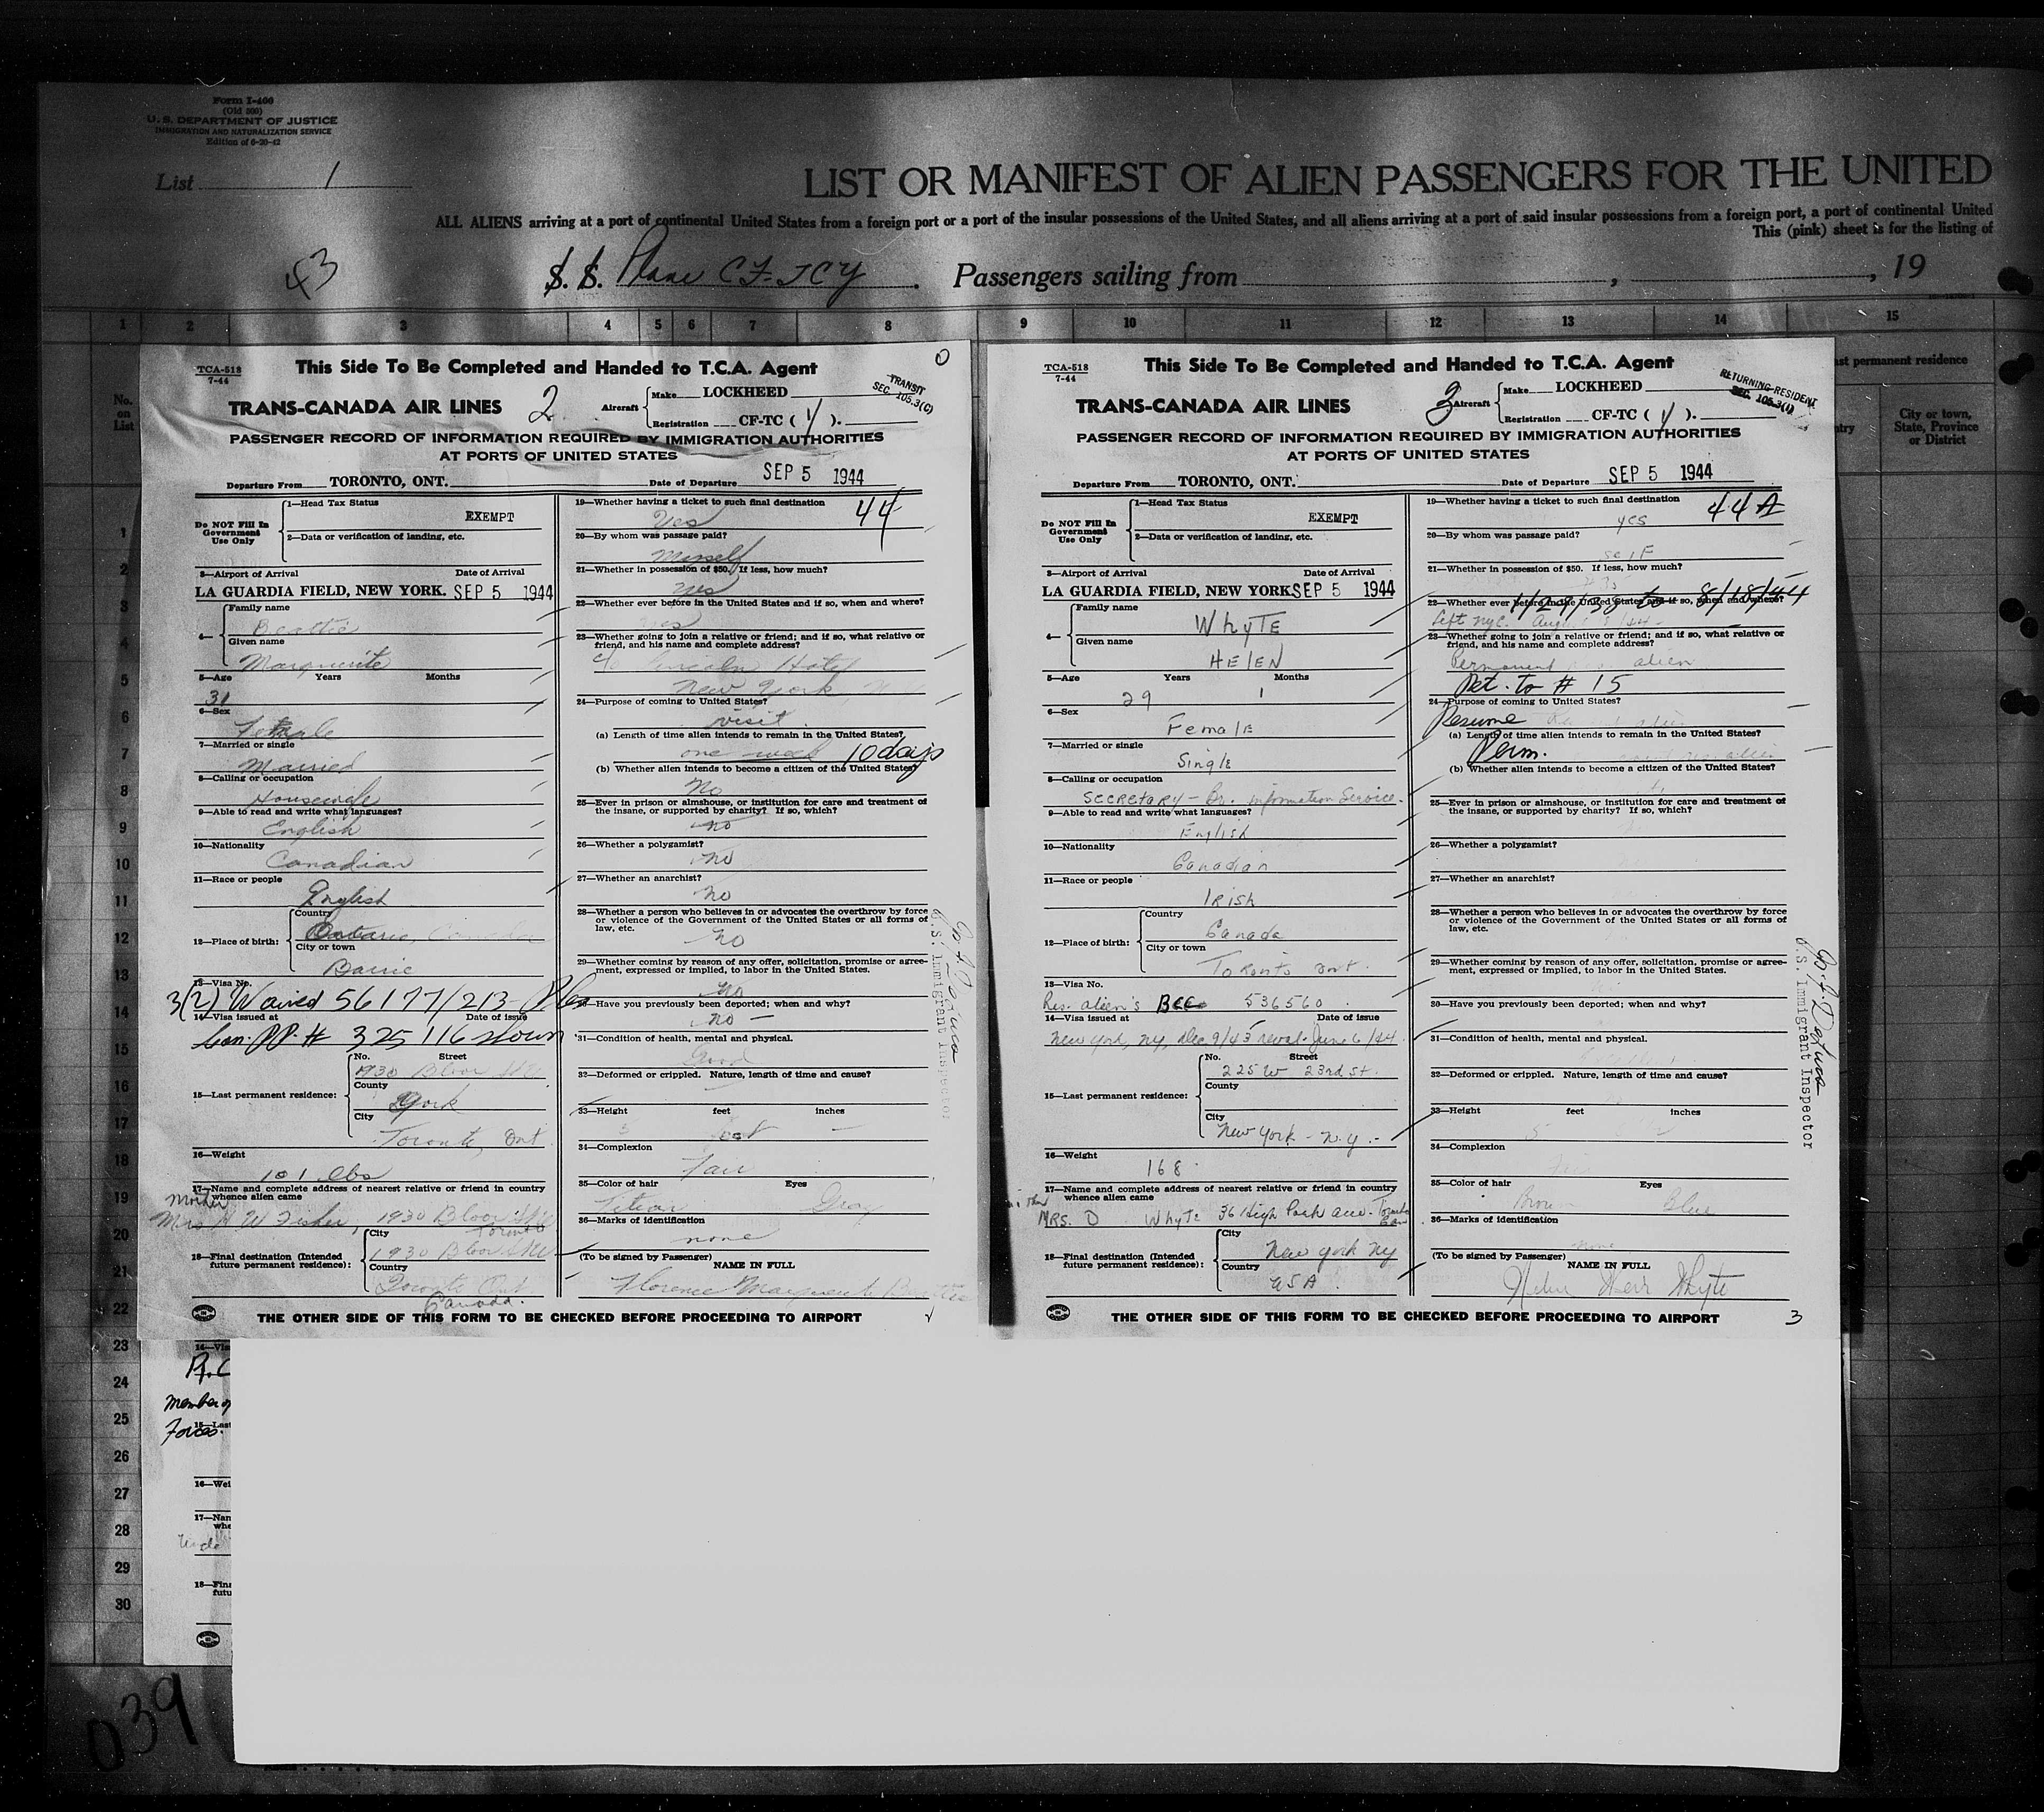 Form I-406
(Old 500)
U. S. DEPARTMENT OF JUSTICE
IMMIGRATION AND NATURALIZATION SERVICE
Edition of 6-20-42
List 1
LIST OR MANIFEST OF ALIEN PASSENGERS FOR THE UNITED
ALL ALIENS arriving at a port of continental United States from a foreign port or a port of the insular possessions of the United States, and all aliens arriving at a port of said insular possessions from a foreign port, a port of continental United
This (pink) sheet is for the listing of
43
S. S. Plane CF-TCY. Passengers sailing from , , 19
1 2 3 4 5 6 7 8 9 10 11 12 13 14 15
No. on List
ast permanent residence
try
City or town, State, Province or District
1
2
3
4
5
6
7
8
9
10
11
12
13
14
15
16
17
18
19
20
21
22
23
24
25
26
27
28
29
30
TCA-518
7-44
This Side To Be Completed and Handed to T.C.A. Agent
0
TRANSIT
SEC. 105.3(C)
TRANS-CANADA AIR LINES 2
Aircraft Make LOCKHEED
Registration CF-TC ( Y ).
PASSENGER RECORD OF INFORMATION REQUIRED BY IMMIGRATION AUTHORITIES
AT PORTS OF UNITED STATES
Departure From TORONTO, ONT. Date of Departure SEP 5 1944
Do NOT Fill In Government Use Only
1—Head Tax Status
EXEMPT
2—Data or verification of landing, etc.
3—Airport of Arrival Date of Arrival
LA GUARDIA FIELD, NEW YORK. SEP 5 1944
4— Family name
Beattie
Given name
Marguerite
5—Age Years Months
31
6—Sex
Female
7—Married or single
Married
8—Calling or occupation
Housewife
9—Able to read and write what languages?
English
10—Nationality
Canadian
11—Race or people
English
12—Place of birth: Country
Ontario, Canada
City or town
Barrie
13—Visa No.
3(2) Waived 56177/213
14—Visa issued at Date of issue
Can. PP. # 325116 shown
15—Last permanent residence: No. Street
1930 Bloor St W
County
York
City
Toronto, Ont.
16—Weight
101 lbs
17—Name and complete address of nearest relative or friend in country whence alien came
Mother
Mrs H W Fisher, 1930 Bloor St W
Toronto
18—Final destination (Intended future permanent residence): City
1930 Bloor St W
Country
Toronto Ont
Canada.
19—Whether having a ticket to such final destination
Yes
44
20—By whom was passage paid?
Myself
21—Whether in possession of $50. If less, how much?
Yes
22—Whether ever before in the United States and if so, when and where?
Yes
23—Whether going to join a relative or friend; and if so, what relative or friend, and his name and complete address?
c/o Lincoln Hotel
New York
24—Purpose of coming to United States?
visit
(a) Length of time alien intends to remain in the United States?
one week 10 days
(b) Whether alien intends to become a citizen of the United States?
No
25—Ever in prison or almshouse, or institution for care and treatment of the insane, or supported by charity? If so, which?
no
26—Whether a polygamist?
no
27—Whether an anarchist?
No
28—Whether a person who believes in or advocates the overthrow by force or violence of the Government of the United States or all forms of law, etc.
No
29—Whether coming by reason of any offer, solicitation, promise or agreement, expressed or implied, to labor in the United States.
No
30—Have you previously been deported; when and why?
no —
31—Condition of health, mental and physical.
Good
32—Deformed or crippled. Nature, length of time and cause?
33—Height feet inches
34—Complexion
Fair
35—Color of hair Eyes
Titian Gray
36—Marks of identification
none
(To be signed by Passenger) NAME IN FULL
Florence Marguerite Beattie
U.S. Immigrant Inspector
THE OTHER SIDE OF THIS FORM TO BE CHECKED BEFORE PROCEEDING TO AIRPORT
TCA-518
7-44
This Side To Be Completed and Handed to T.C.A. Agent
RETURNING RESIDENT
SEC. 105.3(1)
TRANS-CANADA AIR LINES 3
Aircraft Make LOCKHEED
Registration CF-TC ( Y ).
PASSENGER RECORD OF INFORMATION REQUIRED BY IMMIGRATION AUTHORITIES
AT PORTS OF UNITED STATES
Departure From TORONTO, ONT. Date of Departure SEP 5 1944
Do NOT Fill In Government Use Only
1—Head Tax Status
EXEMPT
2—Data or verification of landing, etc.
3—Airport of Arrival Date of Arrival
LA GUARDIA FIELD, NEW YORK SEP 5 1944
4— Family name
WhyTE
Given name
HElEN
5—Age Years Months
29 1
6—Sex
Female
7—Married or single
Single
8—Calling or occupation
SECRETARY - Br. Information Service.
9—Able to read and write what languages?
English
10—Nationality
Canadian
11—Race or people
Irish
12—Place of birth: Country
Canada
City or town
Toronto ont.
13—Visa No.
Res. alien's BCC 536560
14—Visa issued at Date of issue
New York, ny, Dec 9/43 reval. June 6/44
15—Last permanent residence: No. Street
225 W 23rd St.
County
City
New York - N.y.
16—Weight
168
17—Name and complete address of nearest relative or friend in country whence alien came
MRS. D Whyte 36 High Park ave. Toronto
Can
18—Final destination (Intended future permanent residence): City
New York Ny
Country
USA.
19—Whether having a ticket to such final destination
yes
44 A
20—By whom was passage paid?
self
21—Whether in possession of $50. If less, how much?
22—Whether ever before in the United States and if so, when and where?
1/29/38 to 8/18/44
left nyc. Aug 18/44
23—Whether going to join a relative or friend; and if so, what relative or friend, and his name and complete address?
Permanent alien
Ret. to # 15
24—Purpose of coming to United States?
Resume
(a) Length of time alien intends to remain in the United States?
Perm.
(b) Whether alien intends to become a citizen of the United States?
25—Ever in prison or almshouse, or institution for care and treatment of the insane, or supported by charity? If so, which?
26—Whether a polygamist?
27—Whether an anarchist?
28—Whether a person who believes in or advocates the overthrow by force or violence of the Government of the United States or all forms of law, etc.
29—Whether coming by reason of any offer, solicitation, promise or agreement, expressed or implied, to labor in the United States.
30—Have you previously been deported; when and why?
31—Condition of health, mental and physical.
32—Deformed or crippled. Nature, length of time and cause?
33—Height feet inches
5
34—Complexion
35—Color of hair Eyes
Brown Blue
36—Marks of identification
none
(To be signed by Passenger) NAME IN FULL
Helen Kerr Whyte
U.S. Immigrant Inspector
THE OTHER SIDE OF THIS FORM TO BE CHECKED BEFORE PROCEEDING TO AIRPORT
3
14—Vis
R.C
Member of
15—Last
Forces.
16—Wei
17—Nam
whe
Uncle
18—Fina
futu
039